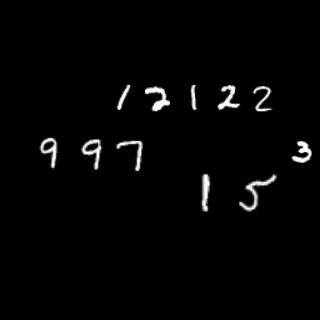 12122
997
3
15